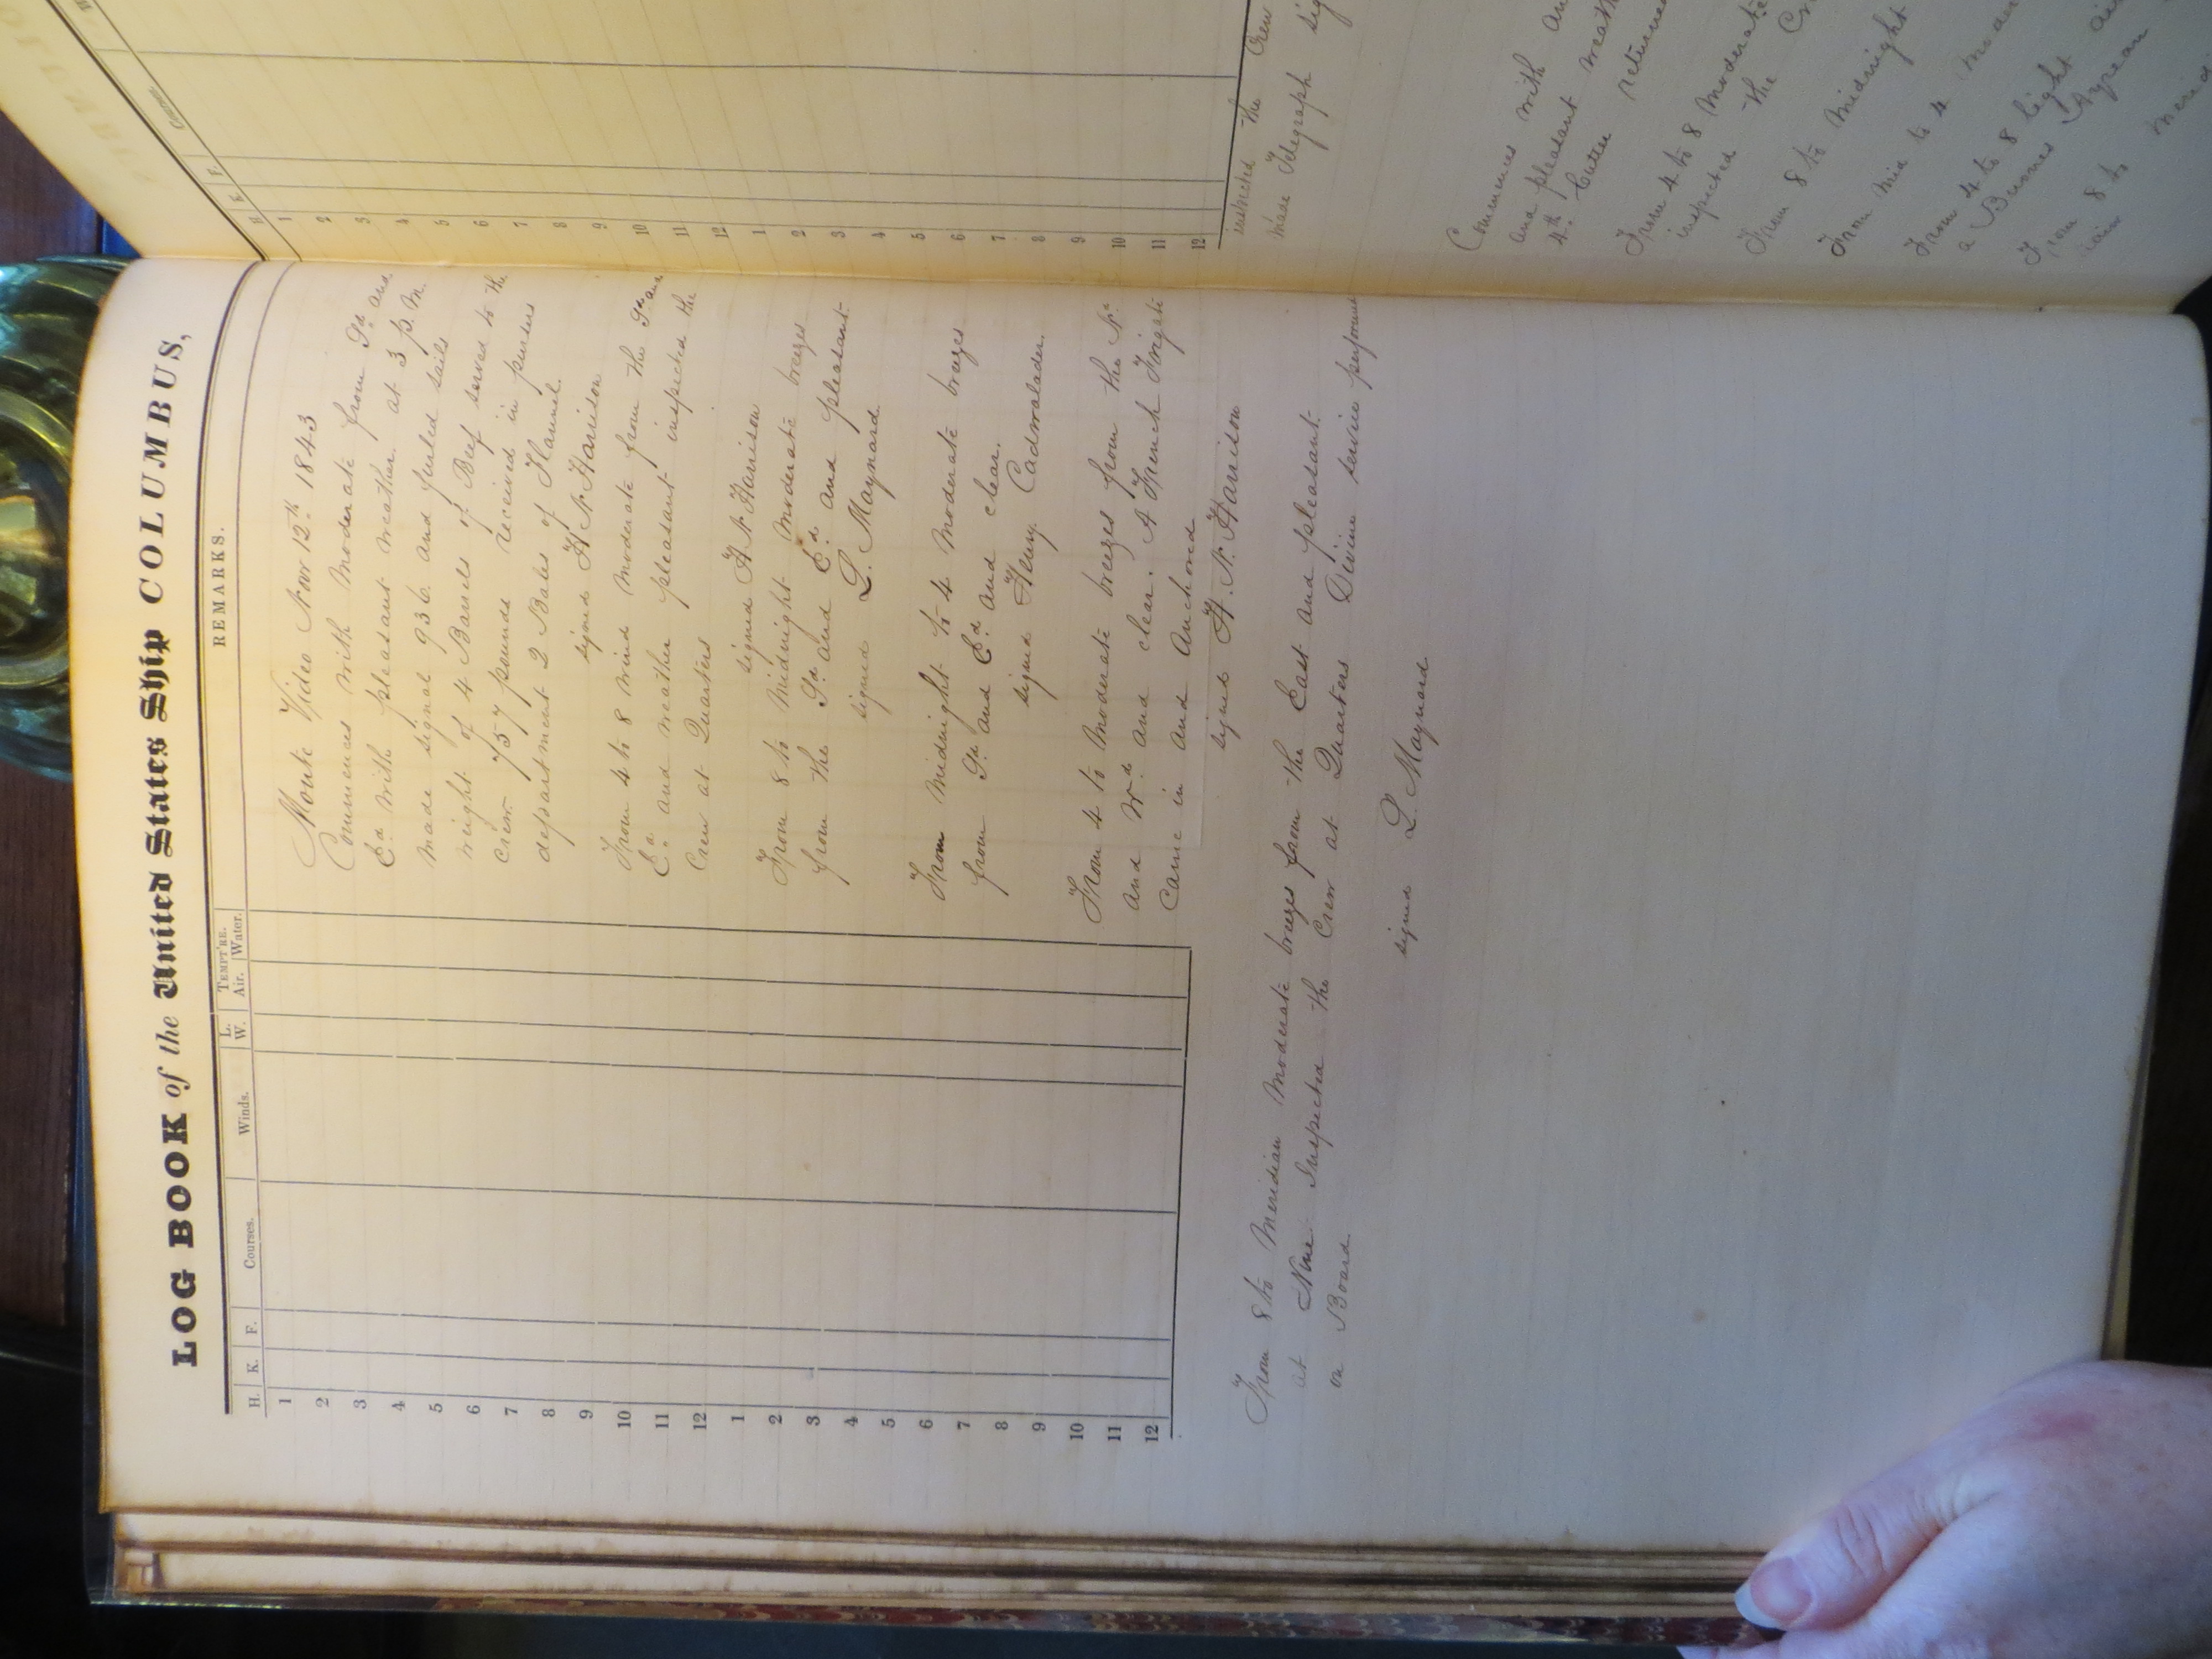 LOG BOOK of the United States Ship COLUMBUS,
H. K. F. Courses. Winds. L. W. TEMPT'RE. Air. Water. REMARKS.
1
2
3
4
5
6
7
8
9
10
11
12
1
2
3
4
5
6
7
8
9
10
11
12
Monte Video Novr 12th 1843
Commences with Moderate from Sd and
Ed with pleasant weather. at 3 p. M.
Made signal 936 and furled sails
weight of 4 Barrels of Beef served to the
crew. 757 pounds received in pursers
department 2 Bales of Flannel.
signed H N Harrison
From 4 to 8 wind Moderate from the Sd and
Ed and weather pleasant inspected the
Crew at Quarters
signed H N Harrison
From 8 to Midnight Moderate breezes
from the Sd and Ed and pleasant
signed L. Maynard
From Midnight to 4 Moderate breezes
from Sd and Ed and clear.
signed Henry Cadwalader.
From 4 to Moderate breezes from the Nd
and Wd and clear. A French Frigate
Came in and Anchored
signed H. N. Harrison
From 8 to Meridian Moderate breezes from the East and pleasant.
at Nine Inspected the Crew at Quarters Divine service performed
on Board.
signed L. Maynard
H. K. F. Courses
1
2
3
4
5
6
7
8
9
10
11
12
1
2
3
4
5
6
7
8
9
10
11
12
inspected the Crew
made Telegraph
Commences with
and pleasant
4th Cutter returned
From 4 to 8 Moderate
inspected the
From 8 to Midnight
From Mid to 4
From 4 to 8 light
a Buenos Ayrean
From 8 to